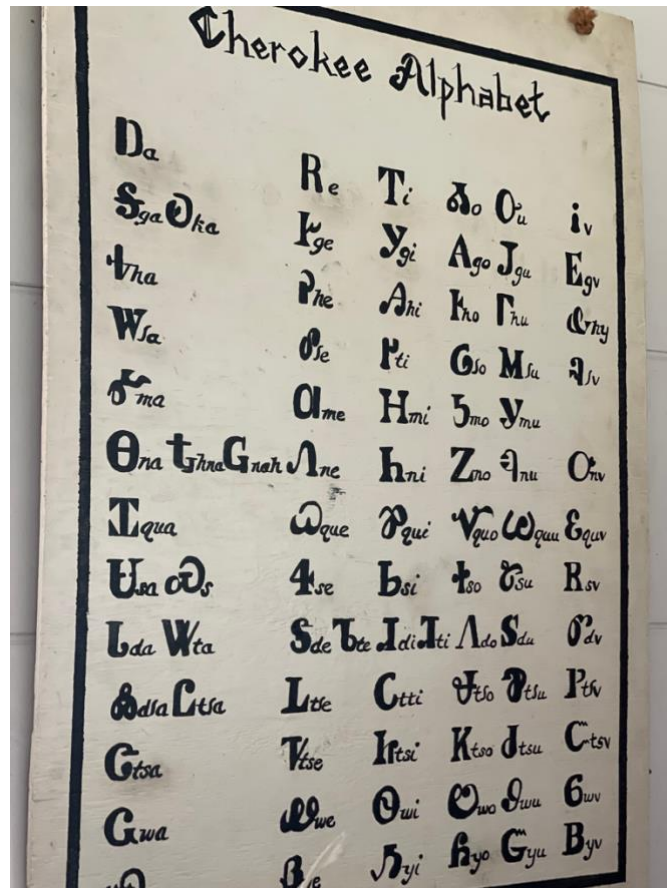 Cherokee Alphabet
Ꭰa Ꭱe Ꭲi Ꭳo Ꭴu Ꭵv
Ꭶga Ꭷka Ꭸge Ꭹgi Ꭺgo Ꭻgu Ꭼgv
Ꭽha Ꭾhe Ꭿhi Ꮀho Ꮁhu Ꮂhy
Ꮃsa Ꮄse Ꮅti Ꮆso Ꮇsu Ꮈsv
Ꮉma Ꮊme Ꮋmi Ꮌmo Ꮍmu
Ꮎna Ꮏhna Ꮐnah Ꮑne Ꮒni Ꮓno Ꮔnu Ꮕnv
Ꮖqua Ꮗque Ꮘqui Ꮙquo Ꮚquu Ꮛquv
Ꮜsa Ꮝs Ꮞse Ꮟsi Ꮠso Ꮡsu Ꮢsv
Ꮣda Ꮤta Ꮥde Ꮦte Ꮧdi Ꮨti Ꮩdo Ꮪdu Ꮫdv
Ꮬdsa Ꮭtsa Ꮮtse Ꮯtti Ꮰtso Ꮱtsu Ꮲtsv
Ꮳtsa Ꮴtse Ꮵtsi Ꮶtso Ꮷtsu Ꮸtsv
Ꮹwa Ꮺwe Ꮻwi Ꮼwo Ꮽwu Ꮾwv
Ᏸe Ᏹyi Ᏺyo Ᏻyu Ᏼyv